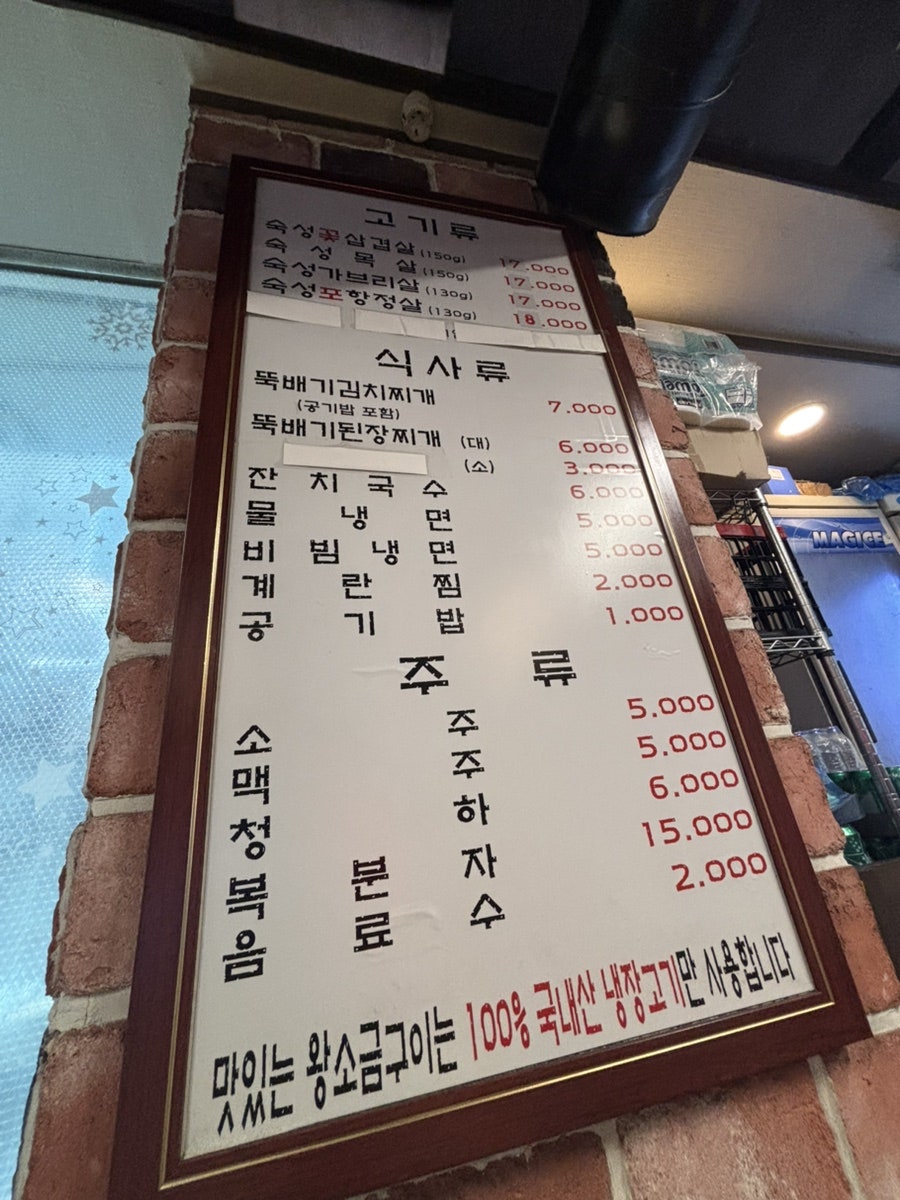 고기류
숙성꽃삼겹살 (150g) 17.000
숙성목살 (150g) 17.000
숙성가브리살 (130g) 17.000
숙성포항정살 (130g) 18.000
식사류
뚝배기김치찌개 7.000
(공기밥 포함)
뚝배기된장찌개 (대) 6.000
(소) 3.000
잔치국수 6.000
물냉면 5.000
비빔냉면 5.000
계란찜 2.000
공기밥 1.000
주류
소주 5.000
맥주 5.000
청하 6.000
복분자 15.000
음료수 2.000
맛있는 왕소금구이는 100% 국내산 냉장고기만 사용합니다
MAGICE